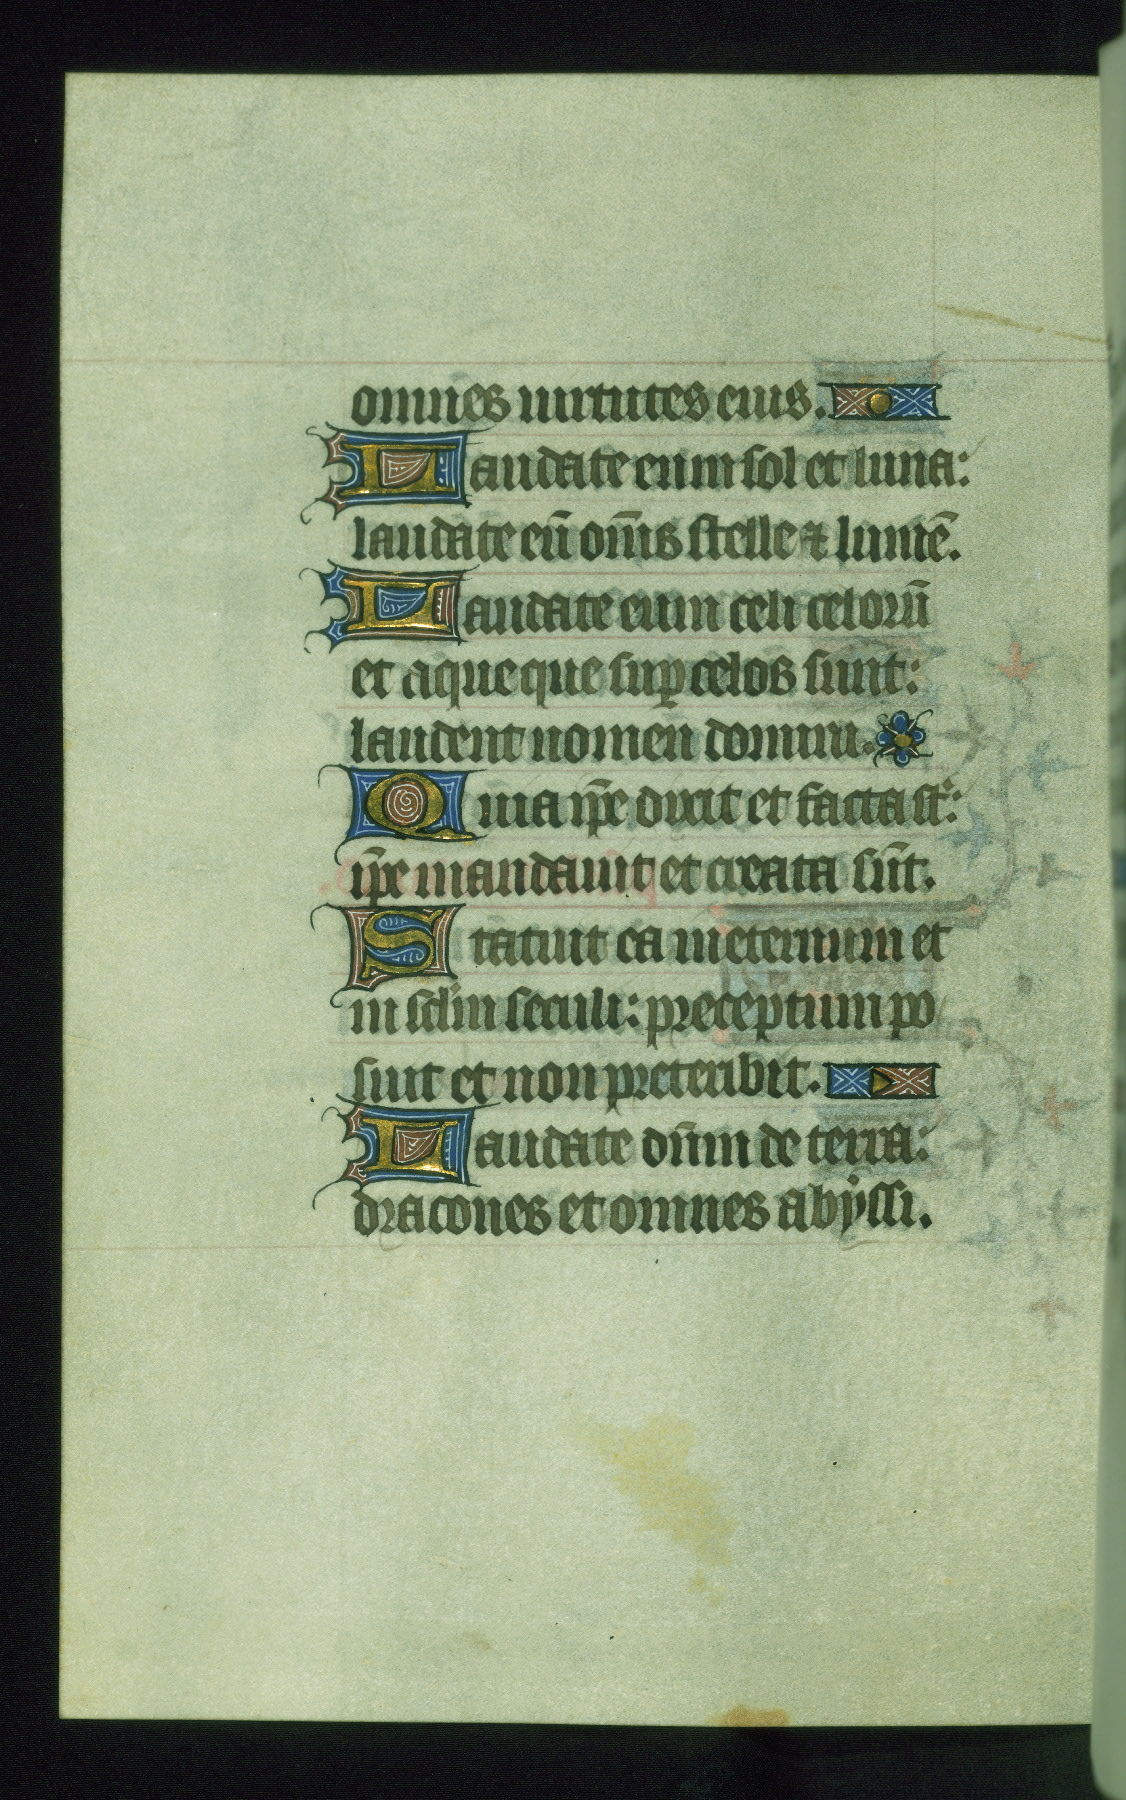 omnes uirtutes eius.
Laudate eum sol et luna:
laudate eū om̄s stelle ⁊ lumē.
Laudate eum celi celorū
et aque que suꝑ celos sunt:
laudent nomen domini.
Quia ip̄e dixit et facta st̄:
ip̄e mandauit et creata sūt.
Statuit ea ineternum et
in sclm̄ seculi: preceptum po
suit et non preteribit.
Laudate dn̄m de terra:
dracones et omnes abyssi.